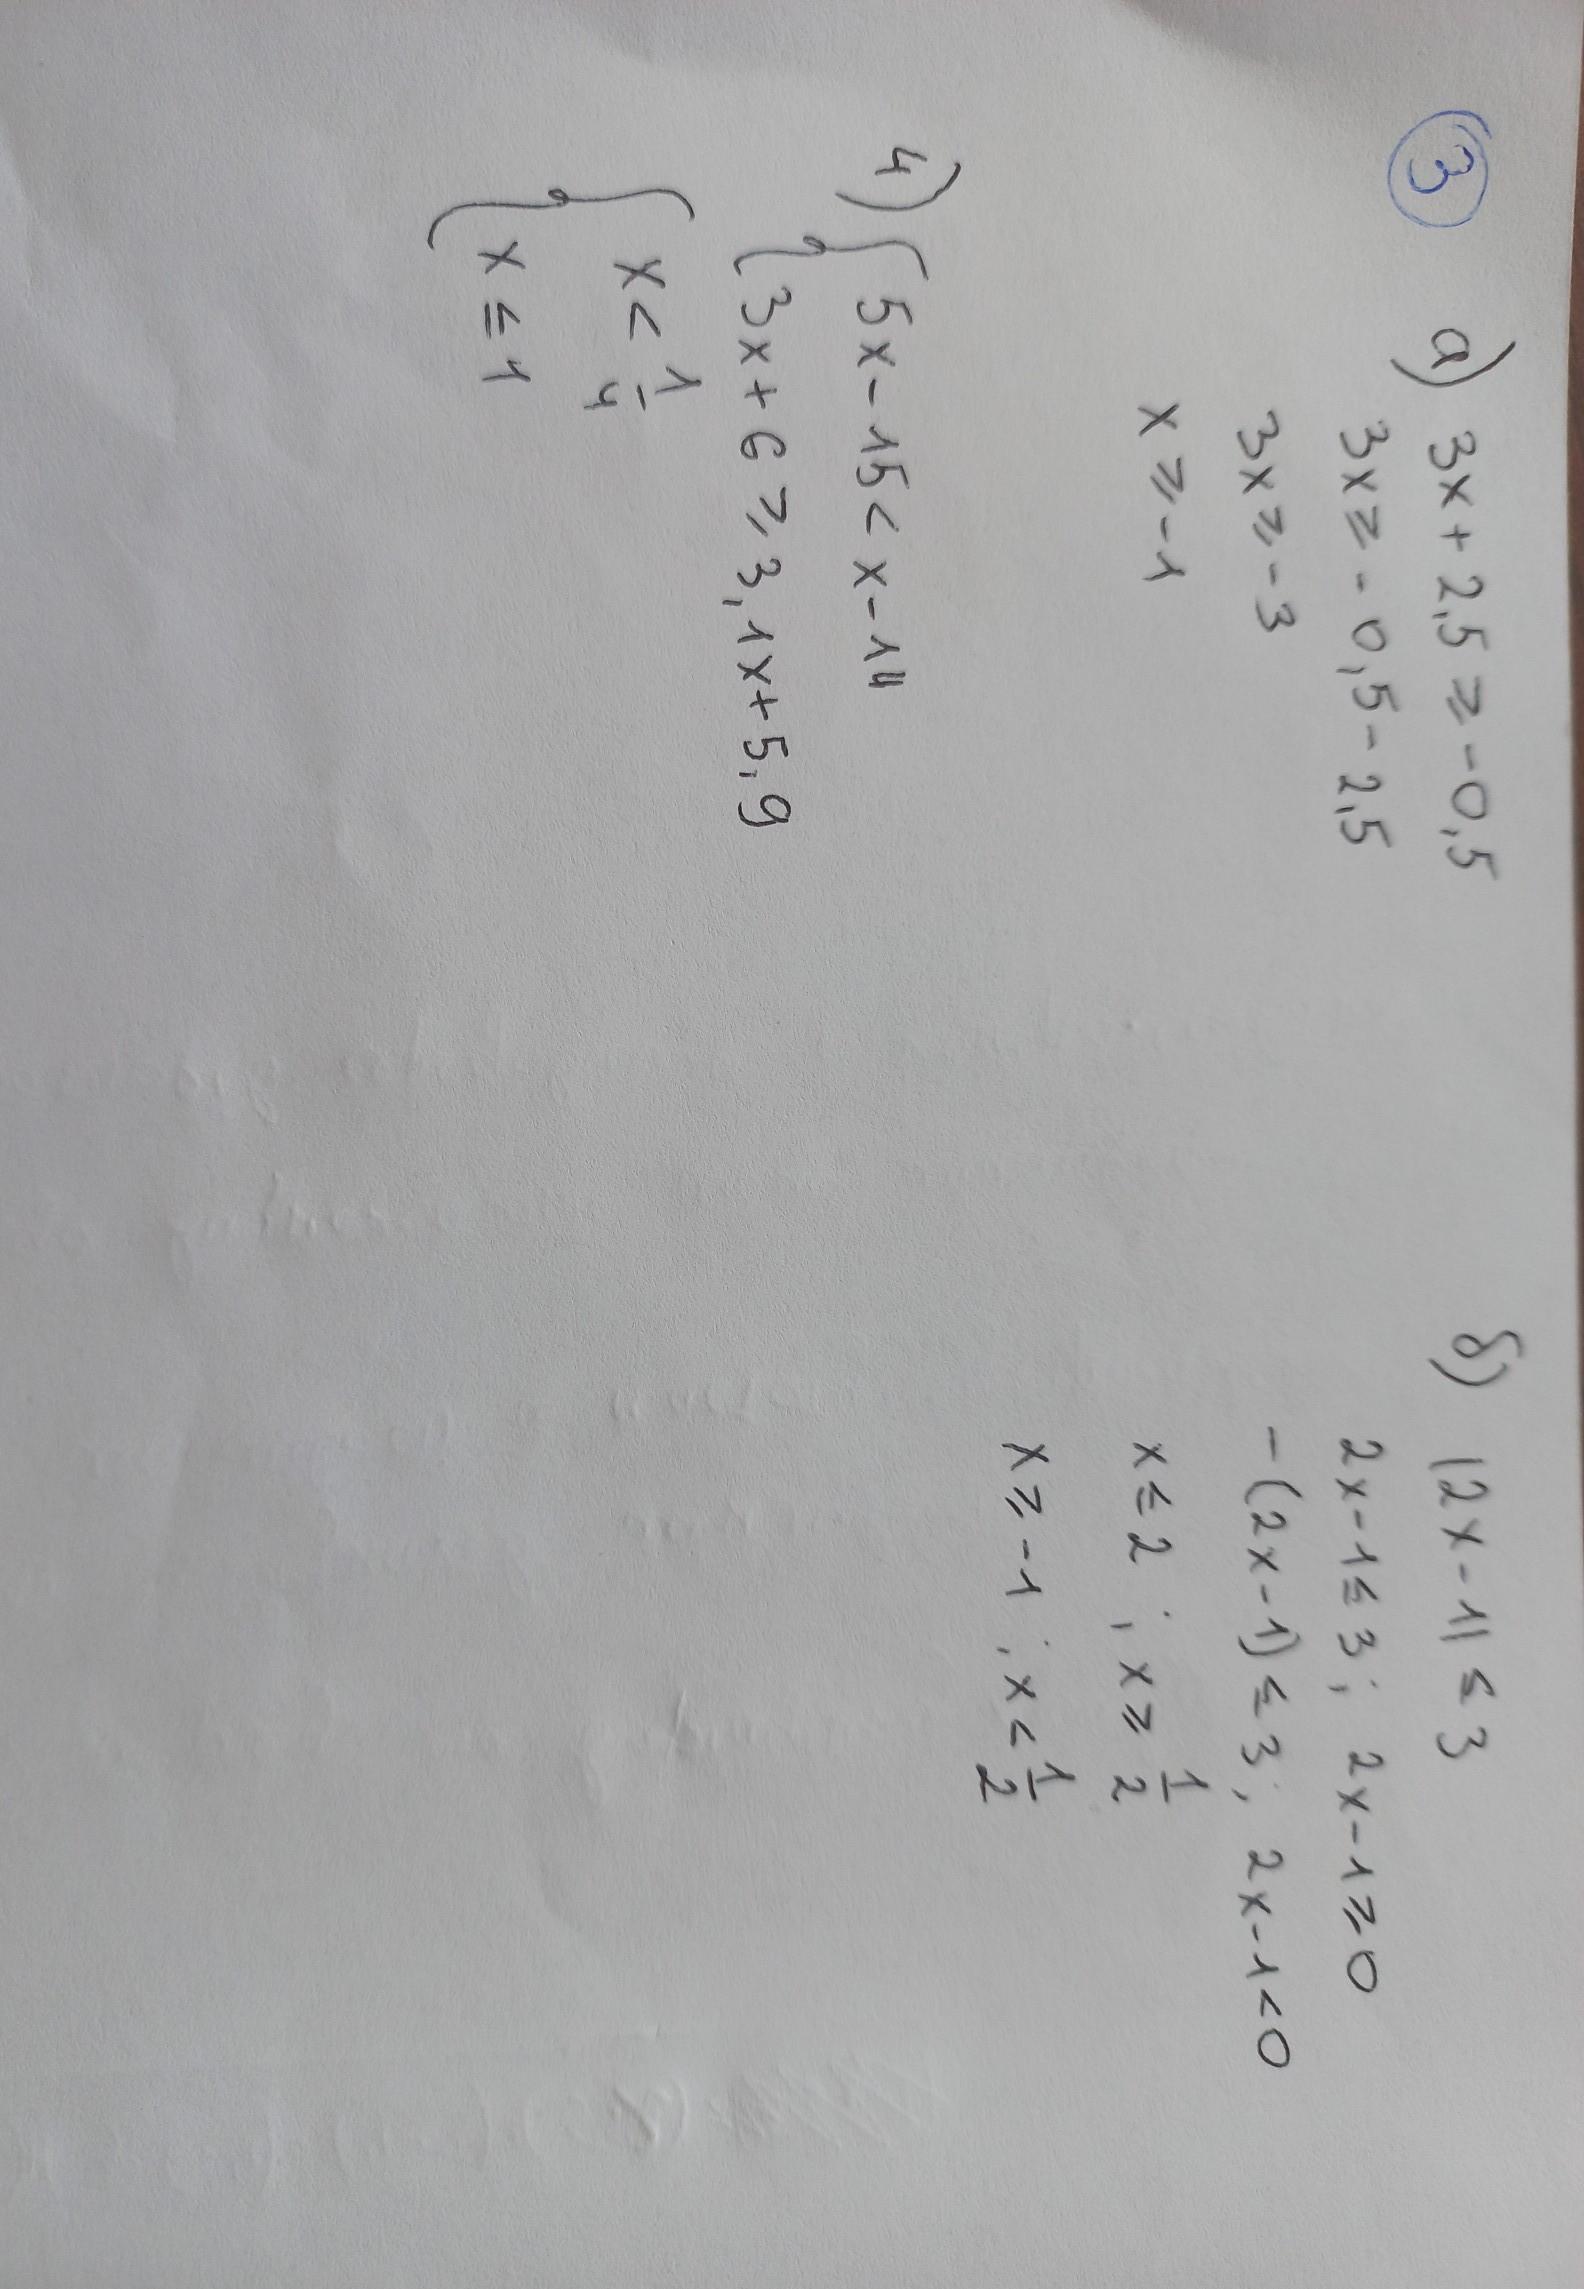 ③ а) 3x + 2,5 ≥ -0,5
3x ≥ -0,5 - 2,5
3x ≥ -3
x ≥ -1
б) |2x - 1| ≤ 3
2x - 1 ≤ 3; 2x - 1 ≥ 0
-(2x - 1) ≤ 3; 2x - 1 < 0
x ≤ 2 ; x ≥ 1/2
x ≥ -1 ; x < 1/2
4) { 5x - 15 < x - 14
3x + 6 ≥ 3,1x + 5,9
{ x < 1/4
x ≤ 1